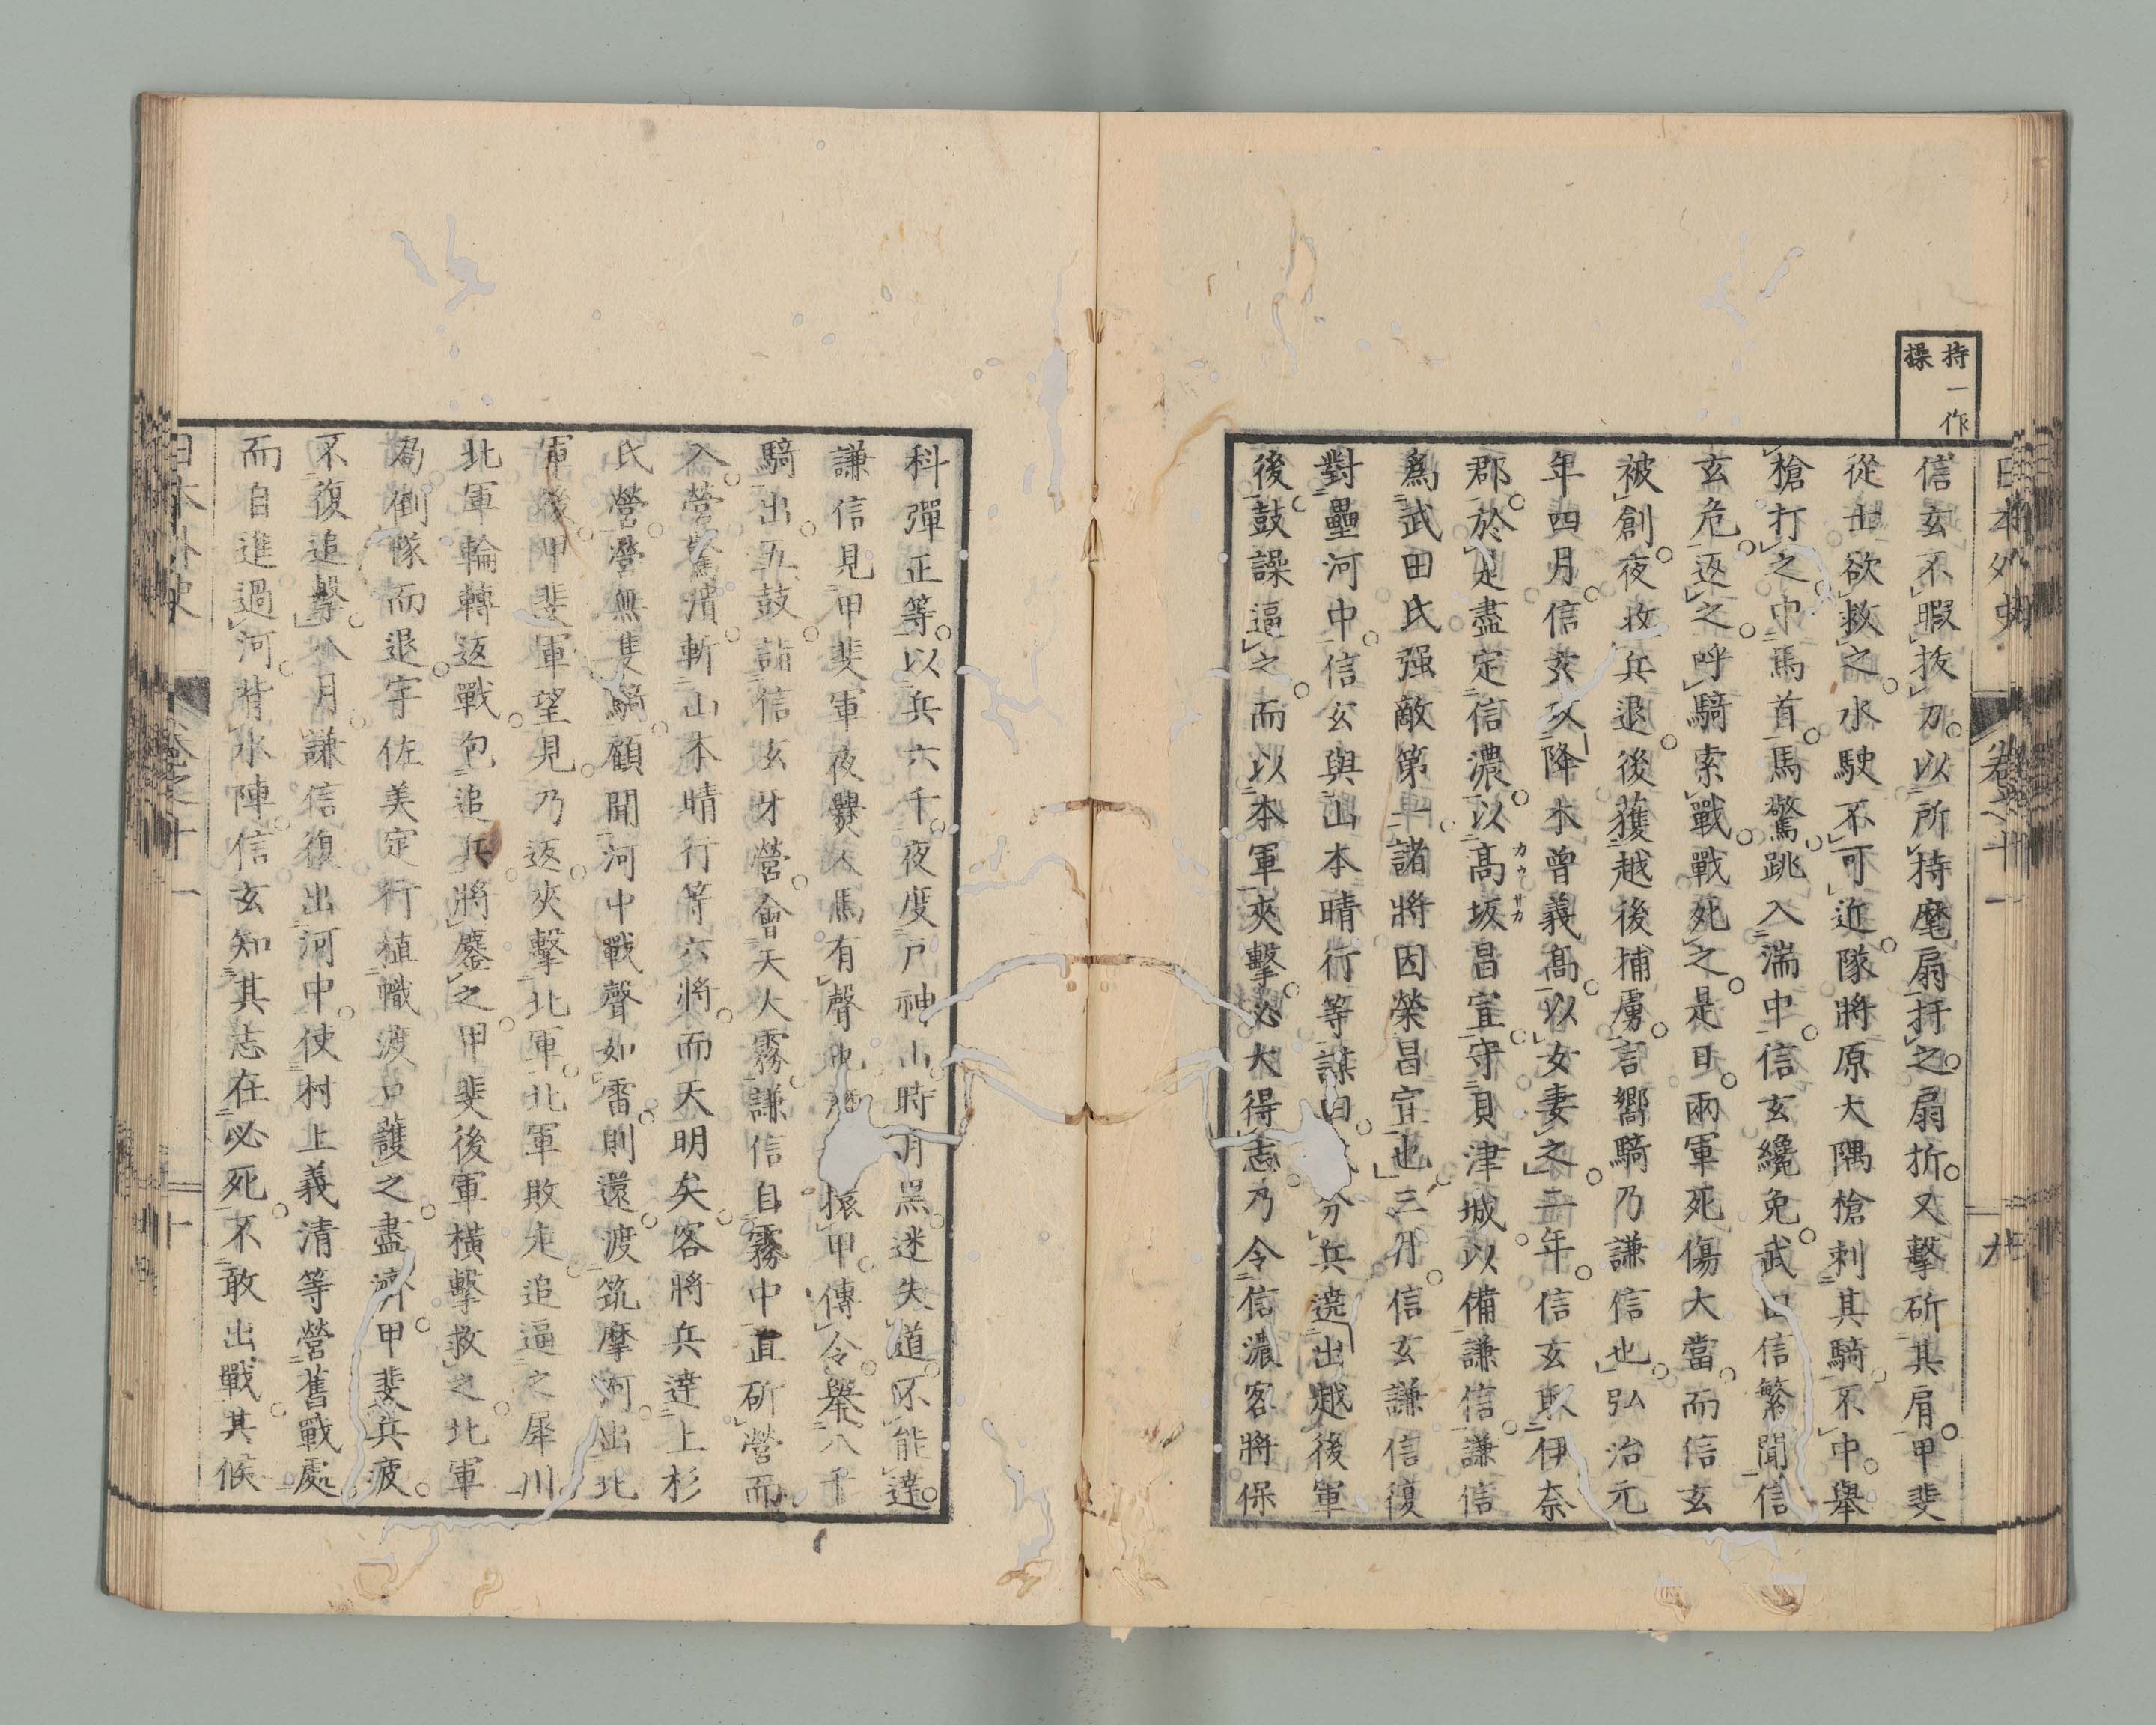 持一作
操
日本外史
卷之十一
九
信玄不暇拔刀以所持麾扇扞之扇折又擊斫其肩甲斐
從士欲救之水駛不可近隊將原大隅槍刺其騎不中舉
槍打之中馬首馬驚跳入湍中信玄纔免武田信繁聞信
玄危返之呼騎索戰戰死之是日兩軍死傷大當而信玄
被創夜收兵退後獲越後捕虜言嚮騎乃謙信也弘治元
年四月信玄攻降木曾義高以女妻之二年信玄取伊奈
郡於是盡定信濃以高坂昌宜守貝津城以備謙信謙信
カウサカ
爲武田氏强敵第一諸將因榮昌宜也三月信玄謙信復
對壘河中信玄與山本晴行等謀曰分兵遶出越後軍
後鼓譟逼之而以本軍夾擊必大得志乃令信濃客將保
科彈正等以兵六千夜度戸神山時月黑迷失道不能達
謙信見甲斐軍夜爨人馬有聲也擐甲傳令舉八千
騎出五鼓詣信玄牙營會天大霧謙信自霧中直斫營而
入營驚潰斬山本晴行等六將而天明矣客將兵達上杉
氏營營無隻騎顧聞河中戰聲如雷則還渡筑摩河出北
軍後甲斐軍望見乃返夾擊北軍北軍敗走追逼之犀川
北軍輪轉返戰包追兵將鏖之甲斐後軍橫擊救之北軍
爲倒隊而退宇佐美定行植幟渡口護之盡濟甲斐兵疲
不復追擊八月謙信復出河中使村上義清等營舊戰處
而自進過河背水陣信玄知其志在必死不敢出戰其候
日本外史
卷之十一
十